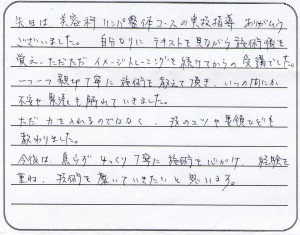 先日は 美容科 リンパ整体コースの実技指導 ありがとう
ございました。 自分なりに テキストを見ながら施術順を
覚え、ただただ イメージトレーニングを続けてからの 受講でした。
一つ一つ 親切丁寧に 施術を教えて頂き、いつの間にか
不安や緊張も解れていきました。
ただ 力を入れるのではなく、技のコツや要領なども
教わりました。
今後は、焦らず ゆっくり丁寧に 施術を心がけ、経験を
重ね、技術を磨いていきたいと思います。